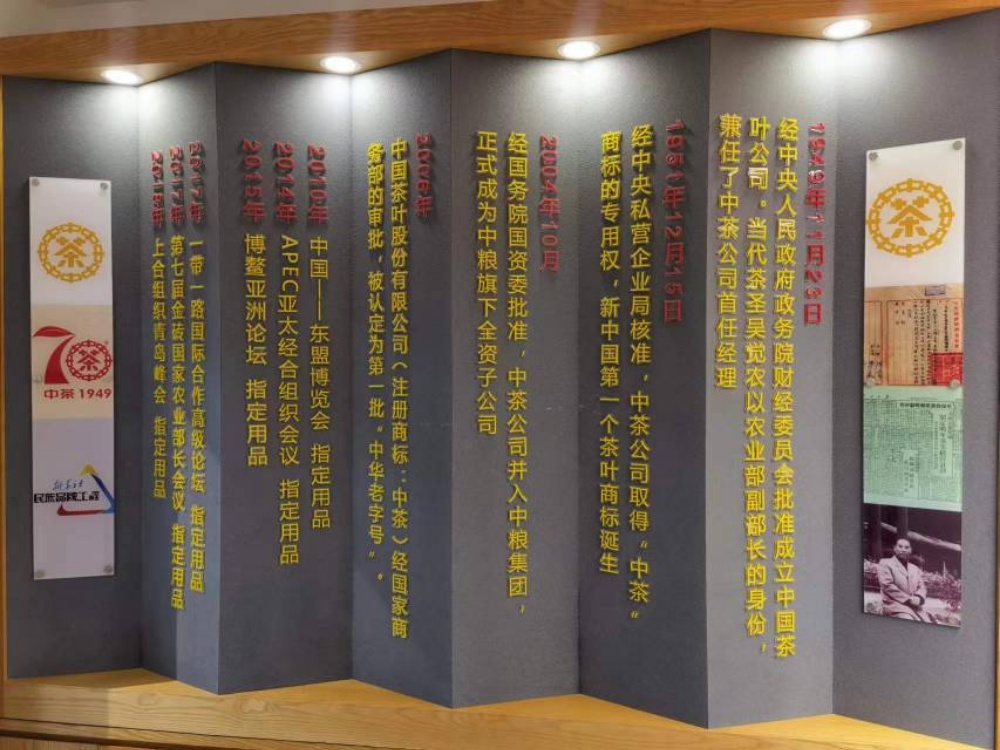 茶
1949年11月23日
经中央人民政府政务院财经委员会批准成立中国茶
叶公司。当代茶圣吴觉农以农业部副部长的身份，
兼任了中茶公司首任经理
1951年12月15日
经中央私营企业局核准，中茶公司取得“中茶“
商标的专用权，新中国第一个茶叶商标诞生
2004年10月
经国务院国资委批准，中茶公司并入中粮集团，
正式成为中粮旗下全资子公司
2006年
中国茶叶股份有限公司（注册商标：中茶）经国家商
务部的审批，被认定为第一批“中华老字号”。
2010年 中国——东盟博览会 指定用品
2014年 APEC亚太经合组织会议 指定用品
2015年 博鳌亚洲论坛 指定用品
2017年 一带一路国际合作高级论坛 指定用品
2017年 第七届金砖国家农业部长会议 指定用品
2018年 上合组织青岛峰会 指定用品
茶
70
茶
中茶 1949
新华社
民族品牌工程